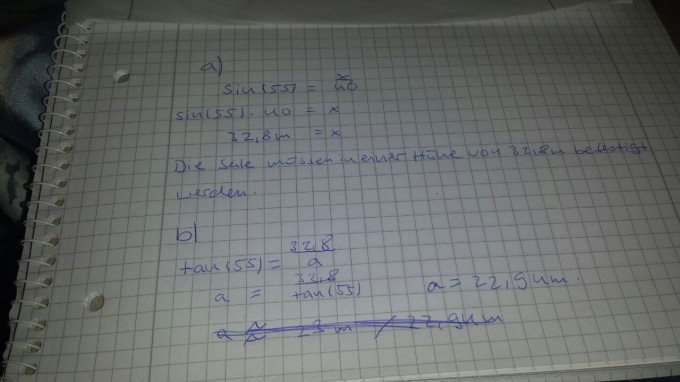 a)
sin(55) = x/40
sin(55) · 40 = x
32,8m = x
Die Seile müssen in einer Höhe von 32,8m befestigt
werden.
b)
tan(55) = 32,8/a
a = 32,8/tan(55) a = 22,94m.
23m / 22,94m